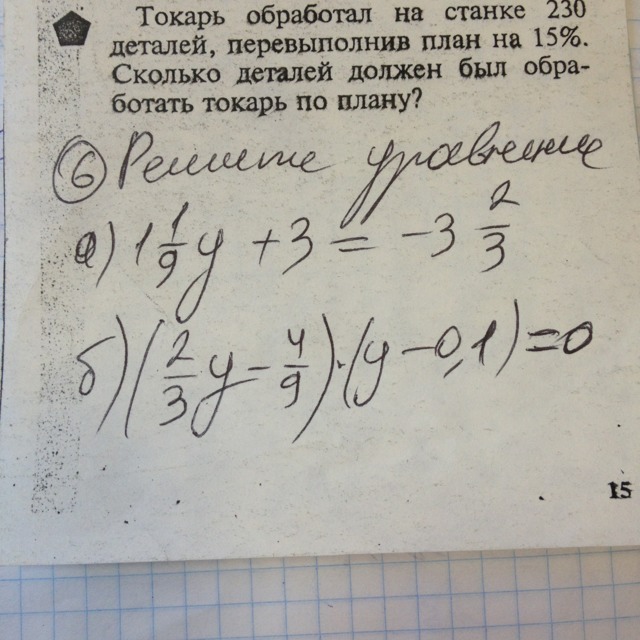 Токарь обработал на станке 230
деталей, перевыполнив план на 15%.
Сколько деталей должен был обра-
ботать токарь по плану?
⑥ Решите уравнение
а) 1 1/9 y + 3 = -3 2/3
б) (2/3 y - 4/9) · (y - 0,1) = 0
15